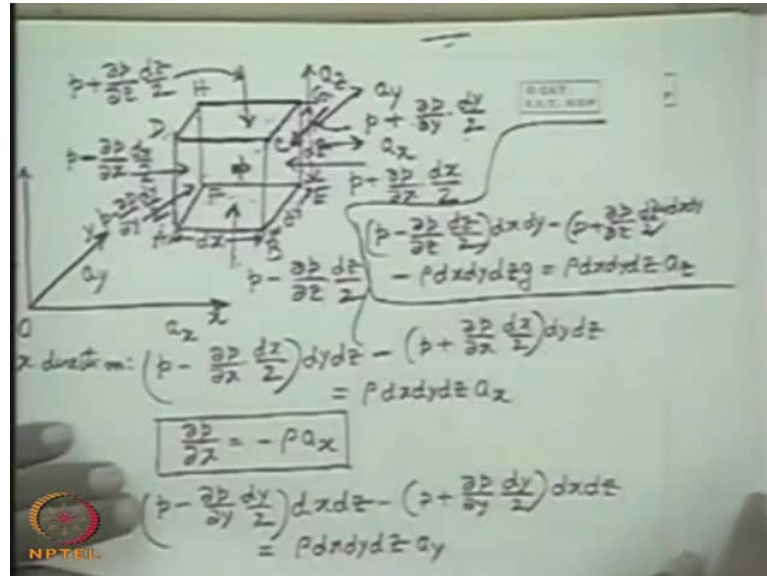 p + ∂p/∂z dz/2
H
a_z
G
a_y
p + ∂p/∂y dy/2
D
C
a_x
p - ∂p/∂x dx/2
p
dz
p + ∂p/∂x dx/2
p - ∂p/∂y dy/2
F
E
A
dx
B
dy
p - ∂p/∂z dz/2
(p - ∂p/∂z dz/2) dx dy - (p + ∂p/∂z dz/2) dx dy
- ρ dx dy dz g = ρ dx dy dz a_z
y
a_y
O
a_x
x
x direction: (p - ∂p/∂x dx/2) dy dz - (p + ∂p/∂x dx/2) dy dz
= ρ dx dy dz a_x
∂p/∂x = - ρ a_x
(p - ∂p/∂y dy/2) dx dz - (p + ∂p/∂y dy/2) dx dz
= ρ dx dy dz a_y
NPTEL